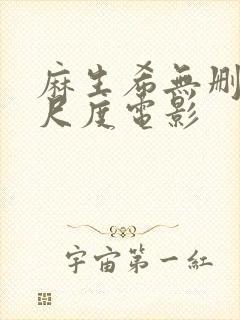 麻生希無刪
尺度電影
宇宙第一紅